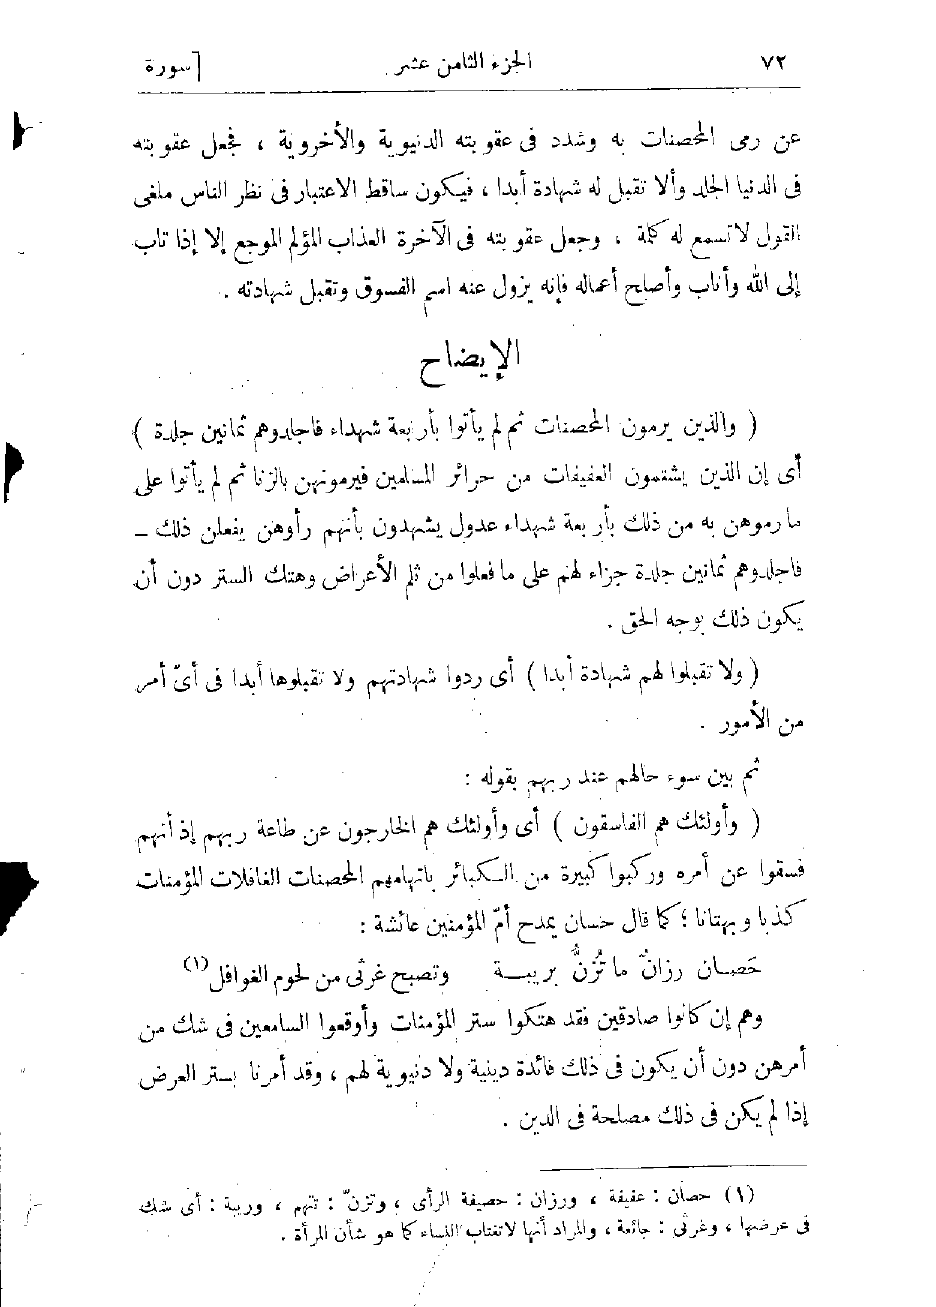 ٧٢ الجزء الثامن عشر [سورة
عن رمى المحصنات به وشدد فى عقوبته الدنيوية والأخروية ، فجعل عقوبته
فى الدنيا الجلد وألا تقبل له شهادة أبدا ، فيكون ساقط الاعتبار فى نظر الناس ملغى
القول لا تسمع له كلمة ، وجعل عقوبته فى الآخرة العذاب المؤلم الموجع إلا إذا تاب
إلى الله وأناب وأصلح أعماله فإنه يزول عنه اسم الفسوق وتقبل شهادته .
الإيضاح
( والذين يرمون المحصنات ثم لم يأتوا بأربعة شهداء فاجلدوهم ثمانين جلدة )
أى إن الذين يشتمون العفيفات من حرائر المسلمين فيرمونهن بالزنا ثم لم يأتوا على
ما رموهن به من ذلك بأربعة شهداء عدول يشهدون بأنهم رأوهن يفعلن ذلك –
فاجلدوهم ثمانين جلدة جزاء لهم على ما فعلوا من ثلم الأعراض وهتك الستر دون أن
يكون ذلك بوجه الحق .
( ولا تقبلوا لهم شهادة أبدا ) أى ردوا شهادتهم ولا تقبلوها أبدا فى أىّ أمر
من الأمور .
ثم بين سوء حالهم عند ربهم بقوله :
( وأولئك هم الفاسقون ) أى وأولئك هم الخارجون عن طاعة ربهم إذ أنهم
فسقوا عن أمره وركبوا كبيرة من الكبائر باتهامهم المحصنات الغافلات المؤمنات
كذبا وبهتانا ؛ كما قال حسان يمدح أمّ المؤمنين عائشة :
حَصان رزانٌ ما تُزَنُّ بريبة وتصبح غرثى من لحوم الغوافل(١)
وهم إن كانوا صادقين فقد هتكوا ستر المؤمنات وأوقعوا السامعين فى شك من
أمرهن دون أن يكون فى ذلك فائدة دينية ولا دنيوية لهم ، وقد أمرنا بستر العرض
إذا لم يكن فى ذلك مصلحة فى الدين .
(١) حصان : عفيفة ، ورزان : حصيفة الرأى ، وتزنّ : تتهم ، وريبة : أى شك
فى عرضها ، وغرثى : جائعة ، والمراد أنها لا تغتاب النساء كما هو شأن المرأة .